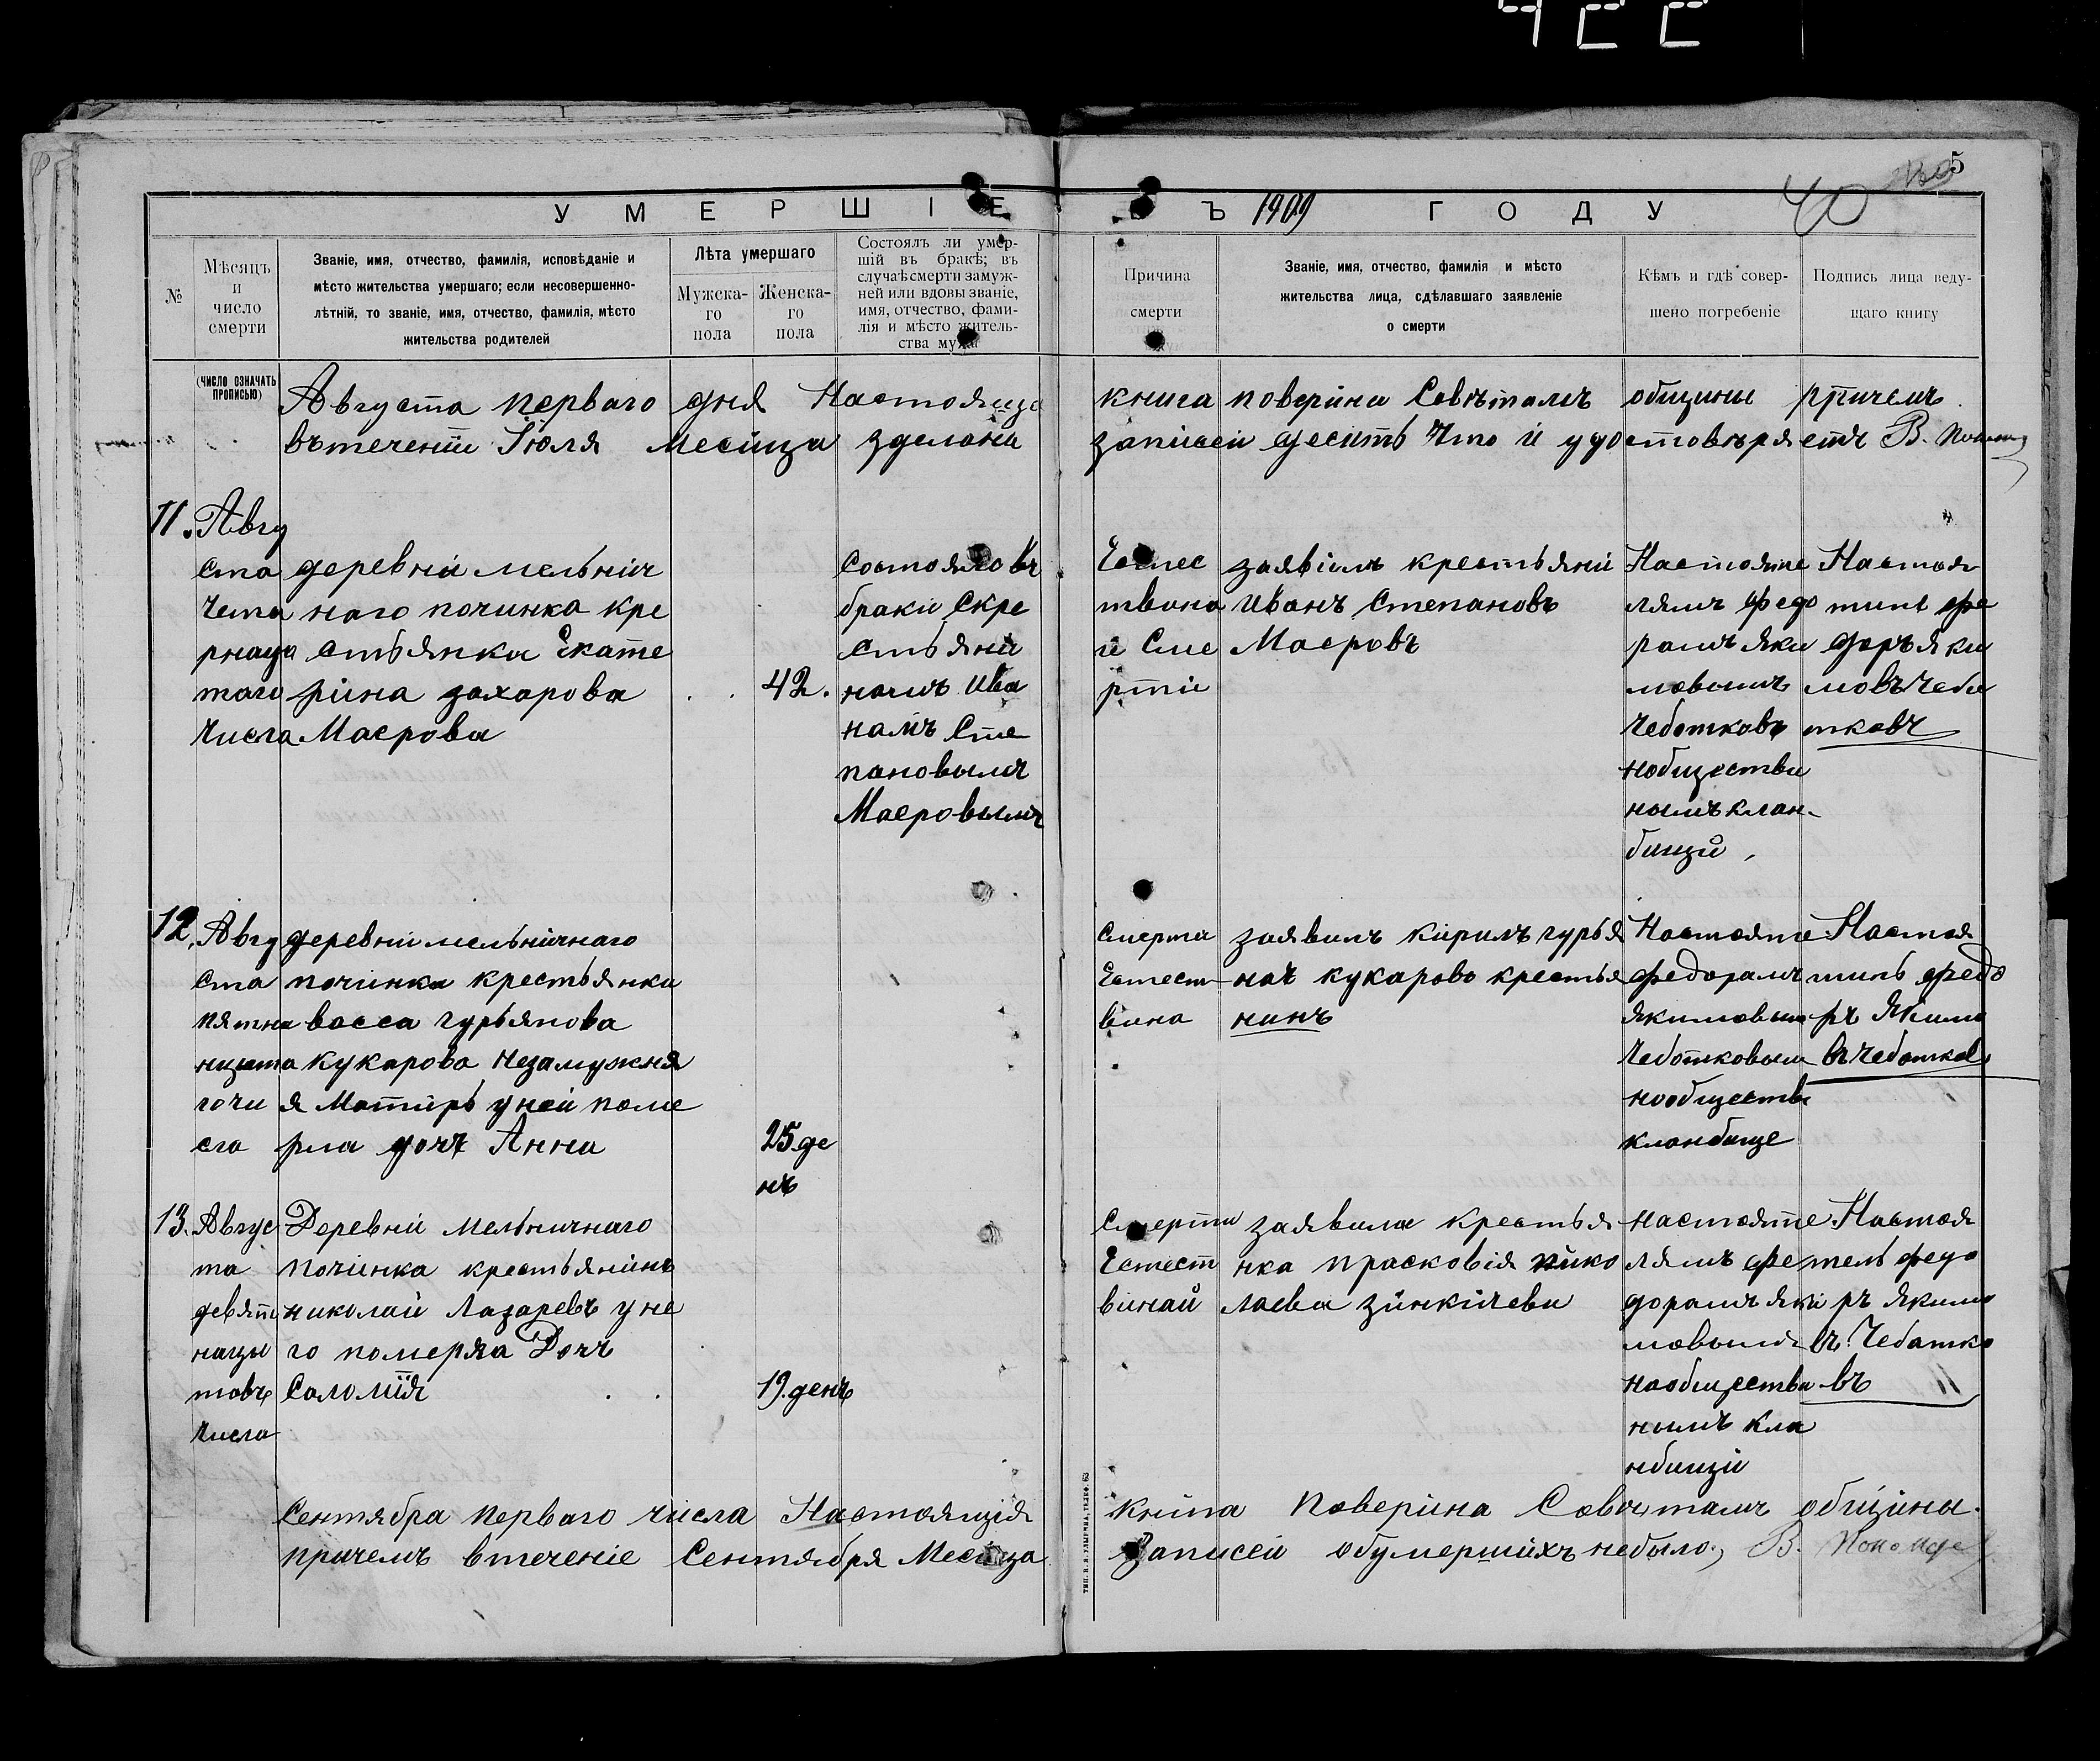 5
40
УМЕРШІЕ ВЪ 1909 ГОДУ
№
Мѣсяцъ
и
число
смерти
Званіе, имя, отчество, фамилія, исповѣданіе и
мѣсто жительства умершаго; если несовершенно-
лѣтній, то званіе, имя, отчество, фамилія, мѣсто
жительства родителей
Лѣта умершаго
Мужска-
го
пола
Женска-
го
пола
Состоялъ ли умер-
шій въ бракѣ; въ
случаѣ смерти замуж-
ней или вдовы званіе,
имя, отчество, фами-
лія и мѣсто житель-
ства мужа
Причина
смерти
Званіе, имя, отчество, фамилія и мѣсто
жительства лица, сдѣлавшаго заявленіе
о смерти
Кѣмъ и гдѣ совер-
шено погребеніе
Подпись лица веду-
щаго книгу
(ЧИСЛО ОЗНАЧАТЬ
ПРОПИСЬЮ)
Августа перваго дня Настоящи книга поверіна Совѣтамъ общины причемъ
втеченіи Іюля месица зделана записей десить что и удостовѣряетъ В.
11.
Авгу
ста
четы
рнаца
таго
числа
деревни мельнич
наго починка кре
стьянка Екате
ріна захарова
Маерова
42.
состояла въ
браки скре
стьяни
номъ ива
номъ Сте
пановымъ
Маеровымъ
Естес
твина
й Сме
рти
заявилъ крестьяни
Иванъ Степановъ
Маеровъ
Настояте
лямъ федо
рамъ яки
мовымъ
чеботковъ
нобществи
нымъ клан-
бищи
Настоя
тиль фе
доръ яки
мовъ чебо
тковъ
12.
Авгу
ста
пятна
ццата
гочи
сла
деревни мельничнаго
починка крестьянка
васса гурьянова
кукарова незамужня
я Матирь у ней поме
рла дочъ Анна
25 де
нъ
смерти
Естест
вина
заявилъ кирилъ гурья
новъ кукарово крестья
нинъ
Настояте
федорамъ
якимовым
чеботковым
нообществе
кланбище
Настоя
тиль федо
ръ якимо
въ чеботков
13.
Авгус
та
девятн
нацы
товъ
числа
Деревни мельничнаго
починка крестьянинъ
николай Лазаревъ у не
го померла Дочъ
Саломія
19. денъ
Смерти
Естест
винай
заявила крестья
нка прасковія нико
лаева зинкичева
настояте
лямъ фе
дорамъ яки
мовымъ
наобществи
нымъ кла
нбищи
Настоя
тель федо
ръ якимо
въ Чебатко
въ
Сентября перваго числа Настоящія книга поверина Совѣтамъ общины.
причемъ втеченіе Сентября Месица Записей обумершихъ небыло, В.
ТИП. И. И. УЛЫБИНА, ТЕЛЕФ. 63